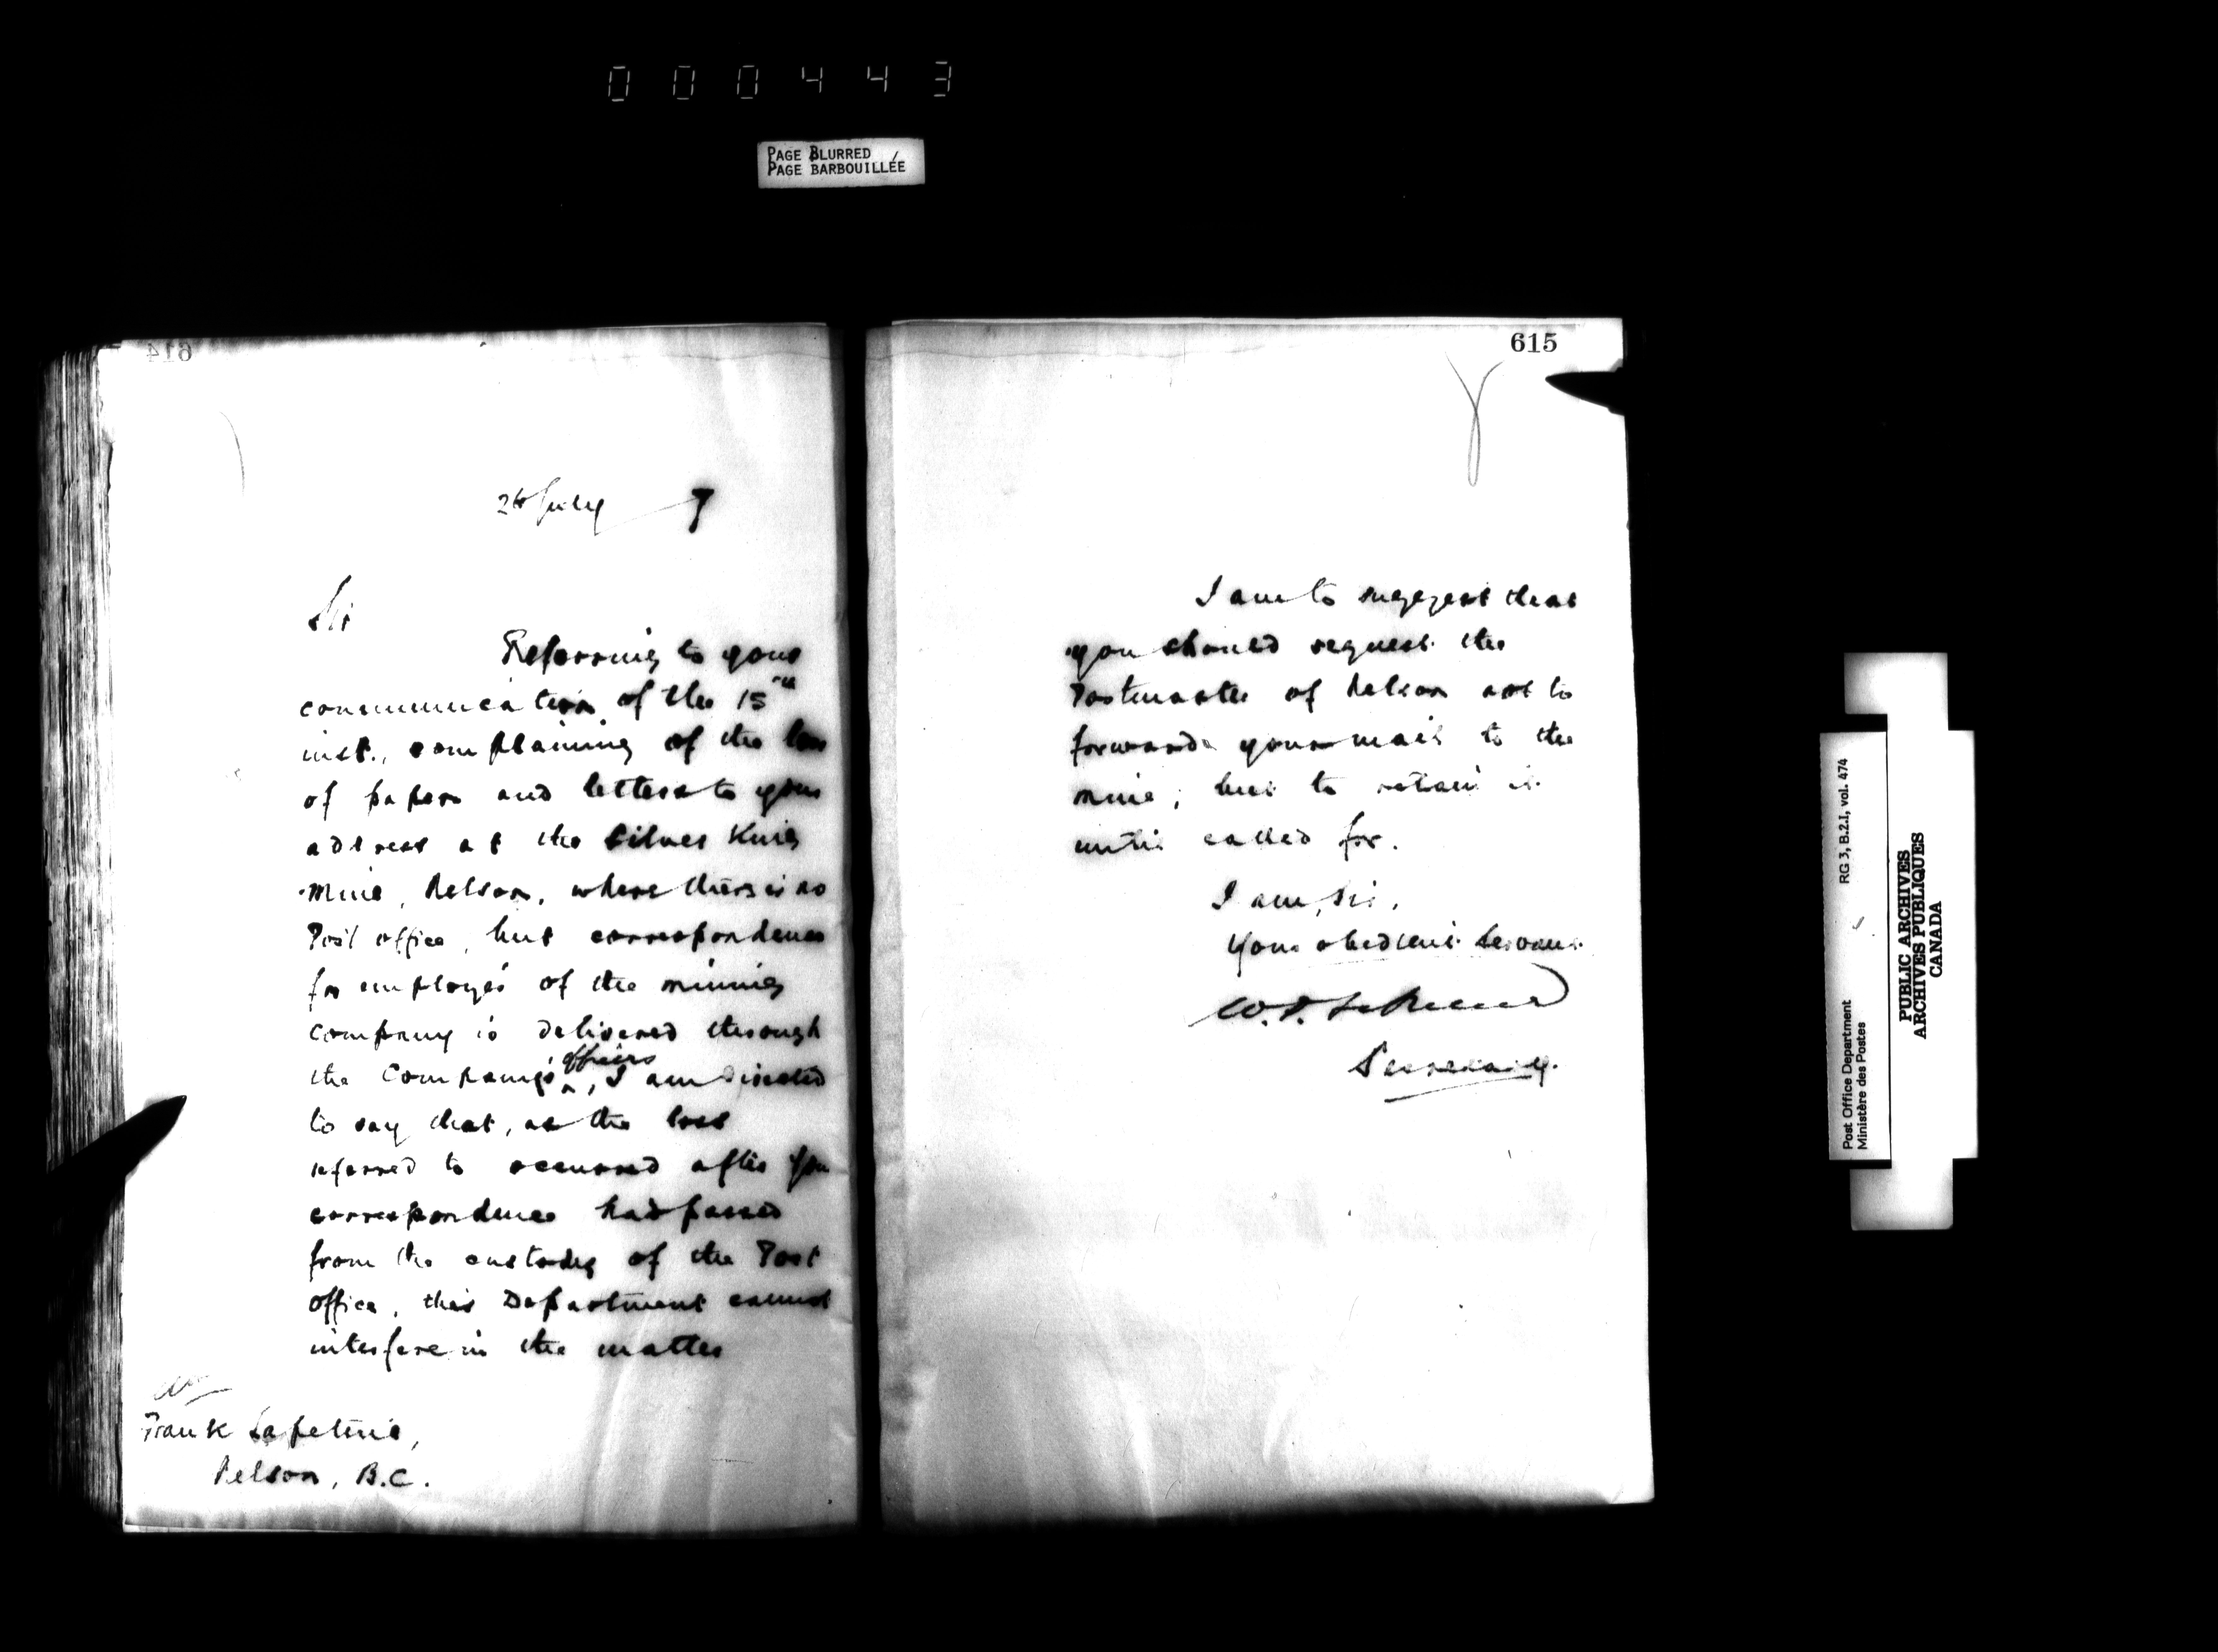 000443
PAGE BLURRED
PAGE BARBOUILLÉE
614
26 July 7
Sir
Referring to your
communication of the 15th
inst., complaining of the loss
of papers and letters to your
address at the Silver King
Mine, Nelson, where there is no
Post office, but correspondence
for employés of the mining
Company is delivered through
the Company's officers, I am directed
to say that, as the loss
referred to occurred after your
correspondence had passed
from the custody of the Post
Office, this Department cannot
interfere in the matter
Frank
Nelson, B.C.
615
I am to suggest that
you should request the
Postmaster of Nelson not to
forward your mail to the
mine, but to retain it
until called for.
I am, Sir,
Your obedient Servant
Secretary.
Post Office Department
Ministère des Postes
RG 3, B.2.I, vol. 474
PUBLIC ARCHIVES
ARCHIVES PUBLIQUES
CANADA